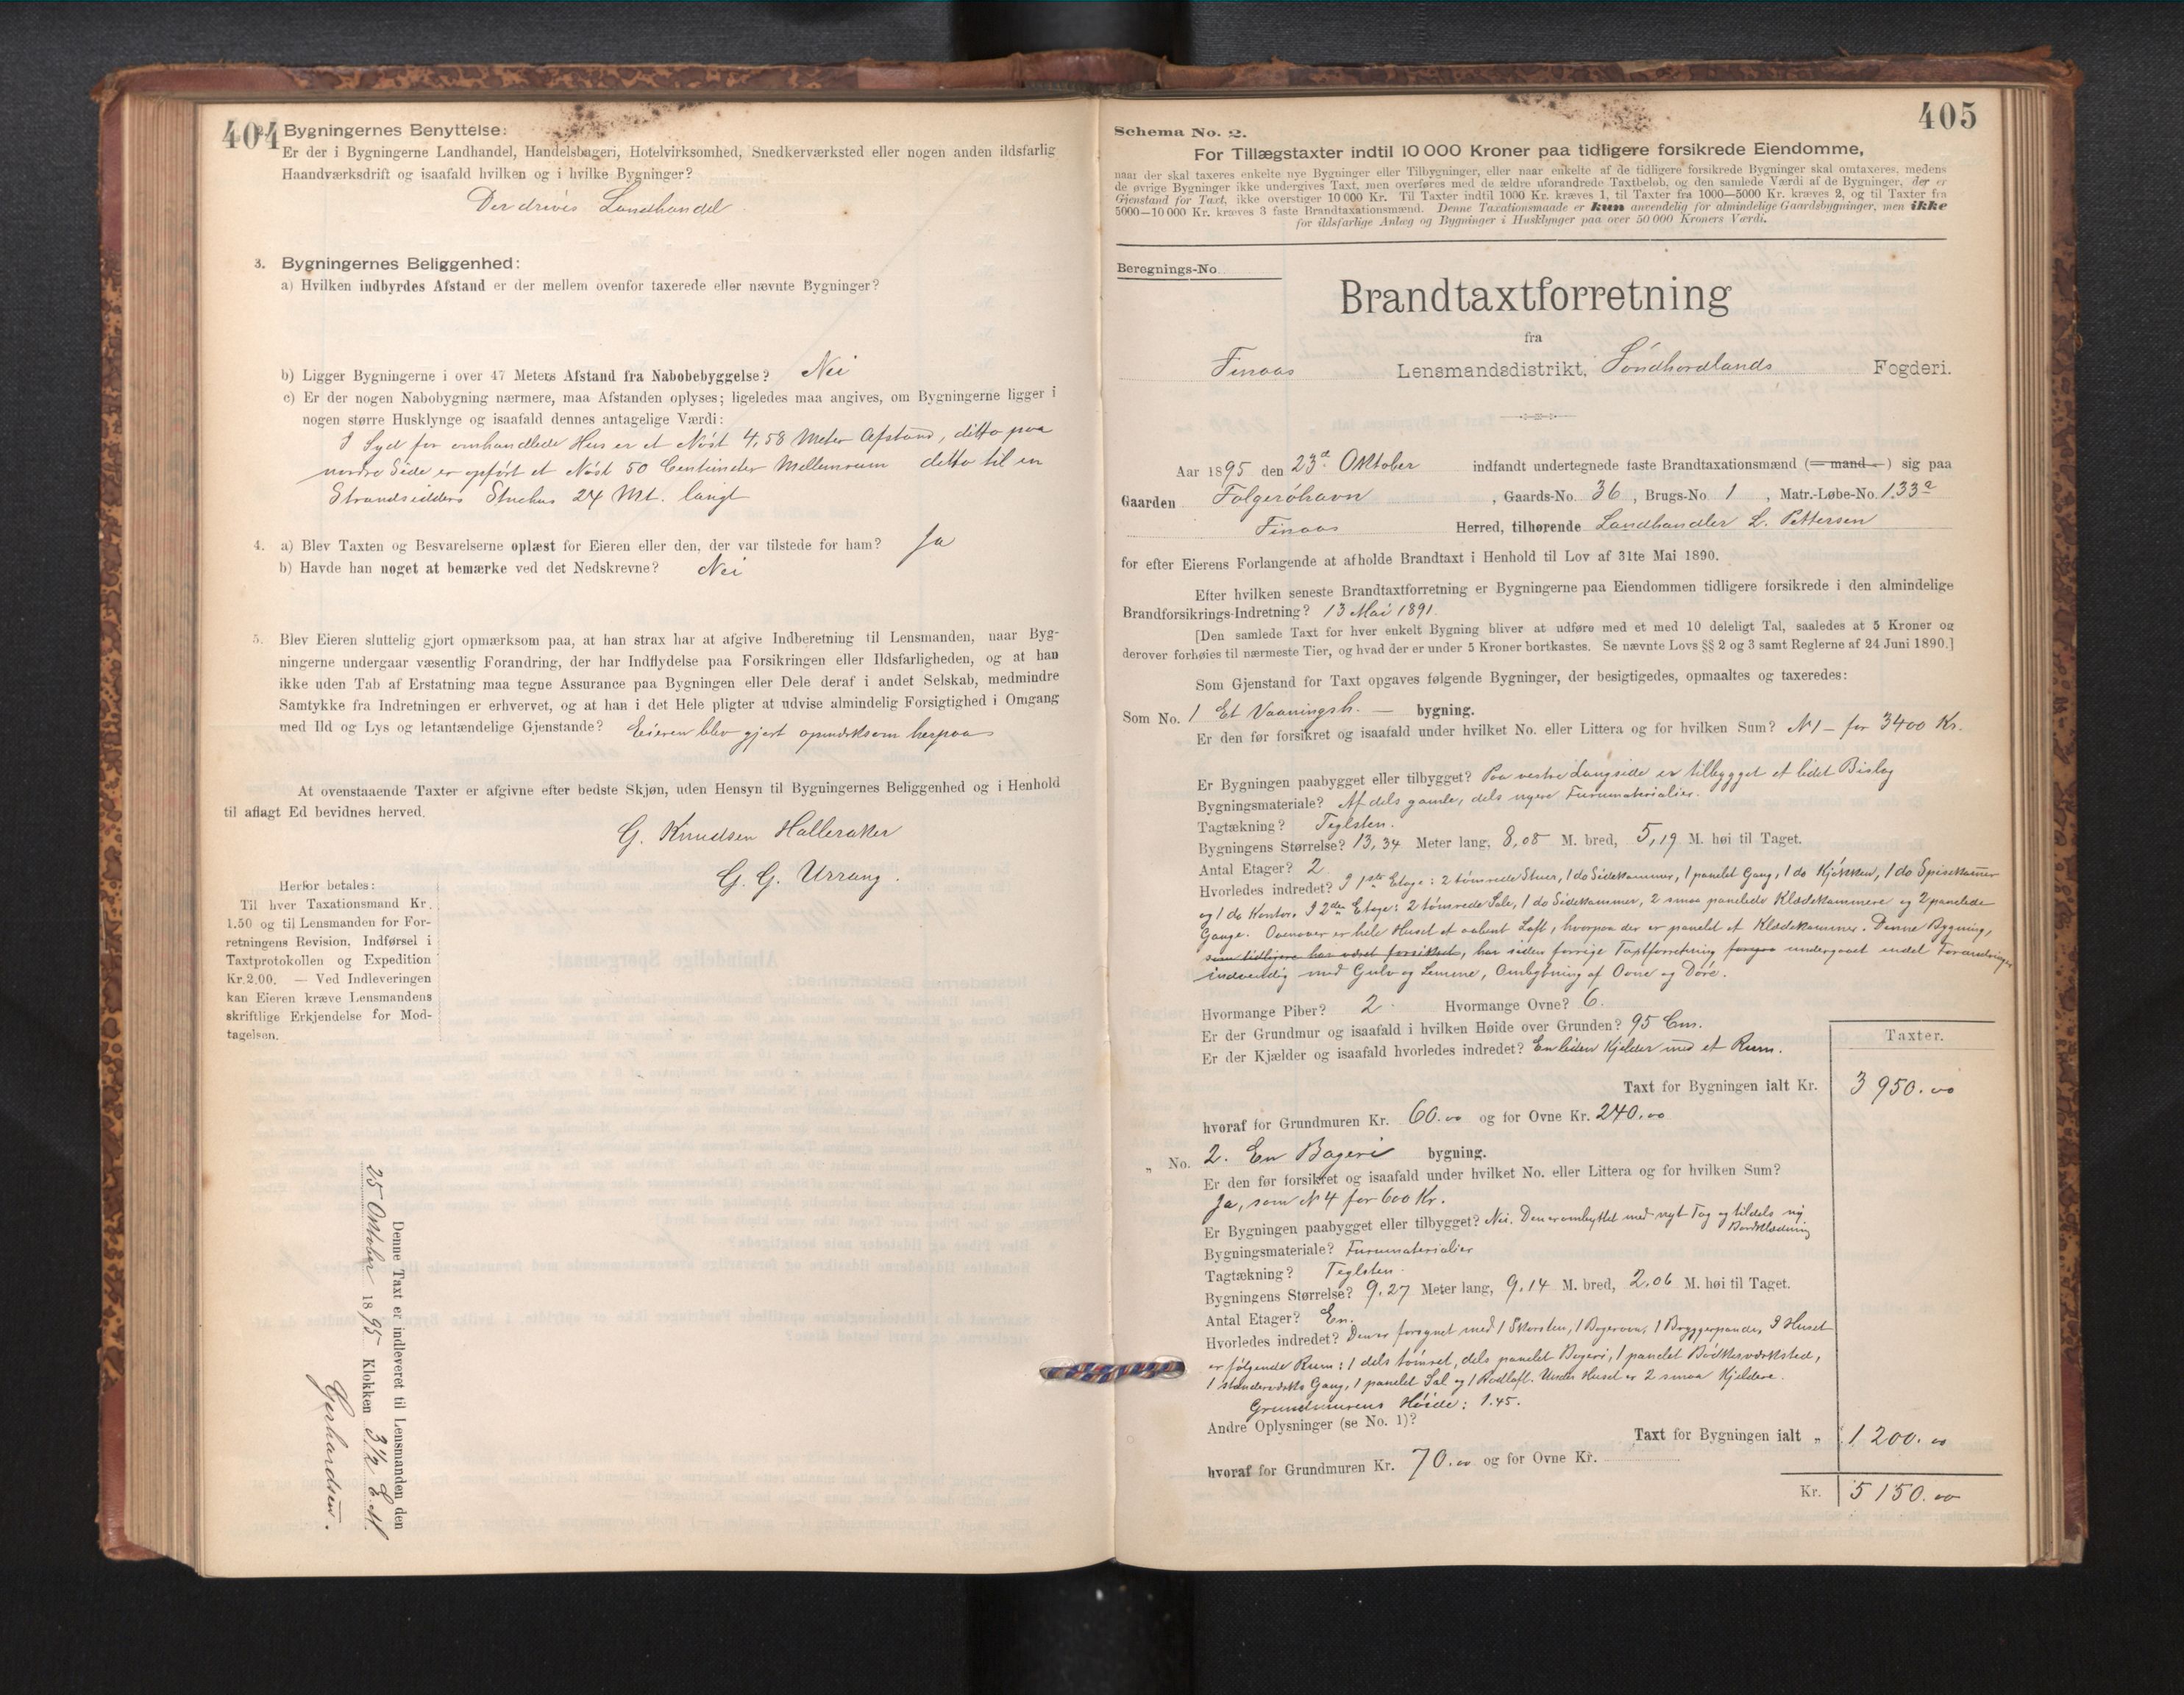 404
2. Bygningernes Benyttelse:
Er der i Bygningerne Landhandel, Handelsbageri, Hotelvirksomhed, Snedkerværksted eller nogen anden ildsfarlig
Haandværksdrift og isaafald hvilken og i hvilke Bygninger?
Der drives Landhandel
3. Bygningernes Beliggenhed:
a) Hvilken indbyrdes Afstand er der mellem ovenfor taxerede eller nævnte Bygninger?
b) Ligger Bygningerne i over 47 Meters Afstand fra Nabobebyggelse? Nei
c) Er der nogen Nabobygning nærmere, maa Afstanden oplyses; ligeledes maa angives, om Bygningerne ligger i
nogen større Husklynge og isaafald dennes antagelige Værdi:
I Syd for omhandlede Hus er et Nøst 4,58 Meter Afstand, ditto paa
nordre Side er opført et Nøst 50 Centimeter Mellemrum ditto til en
Strandsidders Stuehus 24 Mt. langt
4. a) Blev Taxten og Besvarelserne oplæst for Eieren eller den, der var tilstede for ham? Ja
b) Havde han noget at bemærke ved det Nedskrevne? Nei
5. Blev Eieren sluttelig gjort opmærksom paa, at han strax har at afgive Indberetning til Lensmanden, naar Byg-
ningerne undergaar væsentlig Forandring, der har Indflydelse paa Forsikringen eller Ildsfarligheden, og at han
ikke uden Tab af Erstatning maa tegne Assurance paa Bygningen eller Dele deraf i andet Selskab, medmindre
Samtykke fra Indretningen er erhvervet, og at han i det Hele pligter at udvise almindelig Forsigtighed i Omgang
med Ild og Lys og letantændelige Gjenstande? Eieren blev gjort opmærksom herpaa
At ovenstaaende Taxter er afgivne efter bedste Skjøn, uden Hensyn til Bygningernes Beliggenhed og i Henhold
til aflagt Ed bevidnes herved.
G. Knudsen Halleraker
G. G. Urrang.
Herfor betales:
Til hver Taxationsmand Kr.
1.50 og til Lensmanden for For-
retningens Revision, Indførsel i
Taxtprotokollen og Expedition
Kr. 2.00. — Ved Indleveringen
kan Eieren kræve Lensmandens
skriftlige Erkjendelse for Mod-
tagelsen.
Denne Taxt er indleveret til Lensmanden den
25 Oktober 1895 Klokken 3 1/2 E.M.
Gerhardsen.
405
Schema No. 2.
For Tillægstaxter indtil 10 000 Kroner paa tidligere forsikrede Eiendomme,
naar der skal taxeres enkelte nye Bygninger eller Tilbygninger, eller naar enkelte af de tidligere forsikrede Bygninger skal omtaxeres, medens
de øvrige Bygninger ikke undergives Taxt, men overføres med de ældre uforandrede Taxtbeløb, og den samlede Værdi af de Bygninger, der er
Gjenstand for Taxt, ikke overstiger 10 000 Kr. Til Taxter indtil 1000 Kr. kræves 1, til Taxter fra 1000—5000 Kr. kræves 2, og til Taxter fra
5000—10 000 Kr. kræves 3 faste Brandtaxationsmænd. Denne Taxationsmaade er kun anvendelig for almindelige Gaardsbygninger, men ikke
for ildsfarlige Anlæg og Bygninger i Husklynger paa over 50 000 Kroners Værdi.
Beregnings-No.
Brandtaxtforretning
fra
Finaas Lensmandsdistrikt, Søndhordlands Fogderi.
Aar 1895 den 23d. Oktober indfandt undertegnede faste Brandtaxationsmænd (— mand —) sig paa
Gaarden Folgerøhavn, Gaards-No. 36, Brugs-No. 1, Matr.-Løbe-No. 133a
Finaas Herred, tilhørende Landhandler L. Pettersen
for efter Eierens Forlangende at afholde Brandtaxt i Henhold til Lov af 31te Mai 1890.
Efter hvilken seneste Brandtaxtforretning er Bygningerne paa Eiendommen tidligere forsikrede i den almindelige
Brandforsikrings-Indretning? 13 Mai 1891.
[Den samlede Taxt for hver enkelt Bygning bliver at udføre med et med 10 deleligt Tal, saaledes at 5 Kroner og
derover forhøies til nærmeste Tier, og hvad der er under 5 Kroner bortkastes. Se nævnte Lovs §§ 2 og 3 samt Reglerne af 24 Juni 1890.]
Som Gjenstand for Taxt opgaves følgende Bygninger, der besigtigedes, opmaaltes og taxeredes:
Som No. 1 Et Vaaningsh. — bygning.
Er den før forsikret og isaafald under hvilket No. eller Littera og for hvilken Sum? N 1 – for 3400 Kr.
Er Bygningen paabygget eller tilbygget? Paa vestre Langside er tilbygget et lidet Bislag
Bygningsmateriale? Af dels gamle, dels nyere Furumaterialier.
Tagtækning? Teglsten.
Bygningens Størrelse? 13,34 Meter lang, 8,08 M. bred, 5,19 M. høi til Taget.
Antal Etager? 2
Hvorledes indredet? I 1ste Etage: 2 tømrede Stuer, 1 do Sidekammer, 1 panelet Gang, 1 do Kjøkken, 1 do Spisekammer
og 1 do Kontor. I 2den Etage: 2 tømrede Sale, 1 do Sidekammer, 2 smaa panelede Klædekammere og 2 panelede
Gange. Ovenover er hele Huset et aabent Loft, hvorpaa der er panelet et Klædekammer. Denne Bygning,
som tidligere har været forsikret, har siden forrige Taxtforretning undergaaet endel Forandringer
indvendig med Gulv og Lemme, Ombytning af Ovne og Døre.
Hvormange Piber? 2. Hvormange Ovne? 6.
Er der Grundmur og isaafald i hvilken Høide over Grunden? 95 Cm.
Er der Kjælder og isaafald hvorledes indredet? En liden Kjelder med et Rum.
Taxter.
Taxt for Bygningen ialt Kr. 3 950.00
hvoraf for Grundmuren Kr. 60.00 og for Ovne Kr. 240.00
„ No. 2. En Bageri bygning.
Er den før forsikret og isaafald under hvilket No. eller Littera og for hvilken Sum?
Ja, som N 4 for 600 Kr.
Er Bygningen paabygget eller tilbygget? Nei. Den er ombyttet med nyt Tag og tildels ny
Bordklædning
Bygningsmateriale? Furumaterialier
Tagtækning? Teglsten.
Bygningens Størrelse? 9,27 Meter lang, 9,14 M. bred, 2,06 M. høi til Taget.
Antal Etager? En.
Hvorledes indredet? Den er forsynet med 1 Skorsten, 1 Bagerovn, 1 Bryggerpande, I Huset
er følgende Rum: 1 dels tømret, dels panelet Bageri, 1 panelet Bødkerværksted,
1 stenderværks Gang, 1 panelet Sal og 1 Rodloft. Under Huset er 2 smaa Kjeldere.
Grundmurens Høide: 1.45.
Andre Oplysninger (se No. 1)?
Taxt for Bygningen ialt „ 1 200.00
hvoraf for Grundmuren Kr. 70.00 og for Ovne Kr.
Kr. 5 150.00